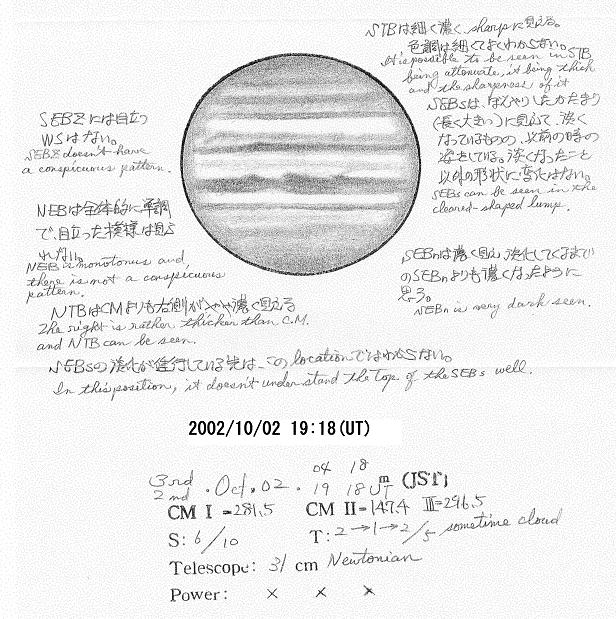 STBは細く濃く、sharpに見える。
色調は細くてよくわからない。
It is possible to be seen in STB
being attenuate, it being thick
and the sharpness of it
SEBZには目立つ
WSはない。
SEBZ doesn't have
a conspicuous pattern.
SEBsは、ぼんやりしたかたまり
(長く大きい)に見えて、淡く
なっているものの、以前の時の
姿をしている。淡くなったこと
以外の形状に変化はない。
SEBs can be seen in the
cleared-shaped lump.
NEBは全体的に単調
で、目立った模様は見ら
れない。
NEB is monotonus and
there is not a conspicuous
pattern.
SEBnは濃く見え、淡化してくるまで
のSEBnよりも濃くなったように
思う。
SEBn is very dark seen.
NTBはCMよりも右側がやや濃く見える
The right is rather thicker than C.M.
and NTB can be seen.
SEBsの淡化が進行している先は、このlocationではわからない。
In this position, it doesn't understand the top of the SEBs well.
2002/10/02 19:18(UT)
04 18
3rd
2nd . Oct. 02 . 19 18 UT m (JST)
CM I =281.5 CM II =147.4 III=296.5
S: 6/10 T: 2→1→2/5 sometime cloud
Telescope: 31 cm Newtonian
Power: × × ×